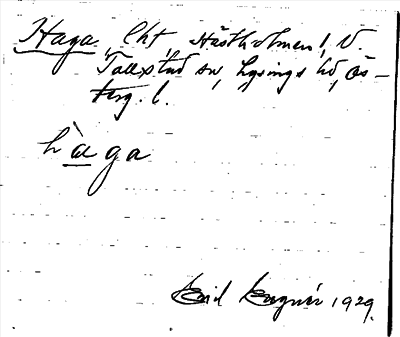 Haga, Lht, Hästholmen, V.
Tollstad sn, Lysings hd, Ös-
terg. l.
hàga
Emil 1929.